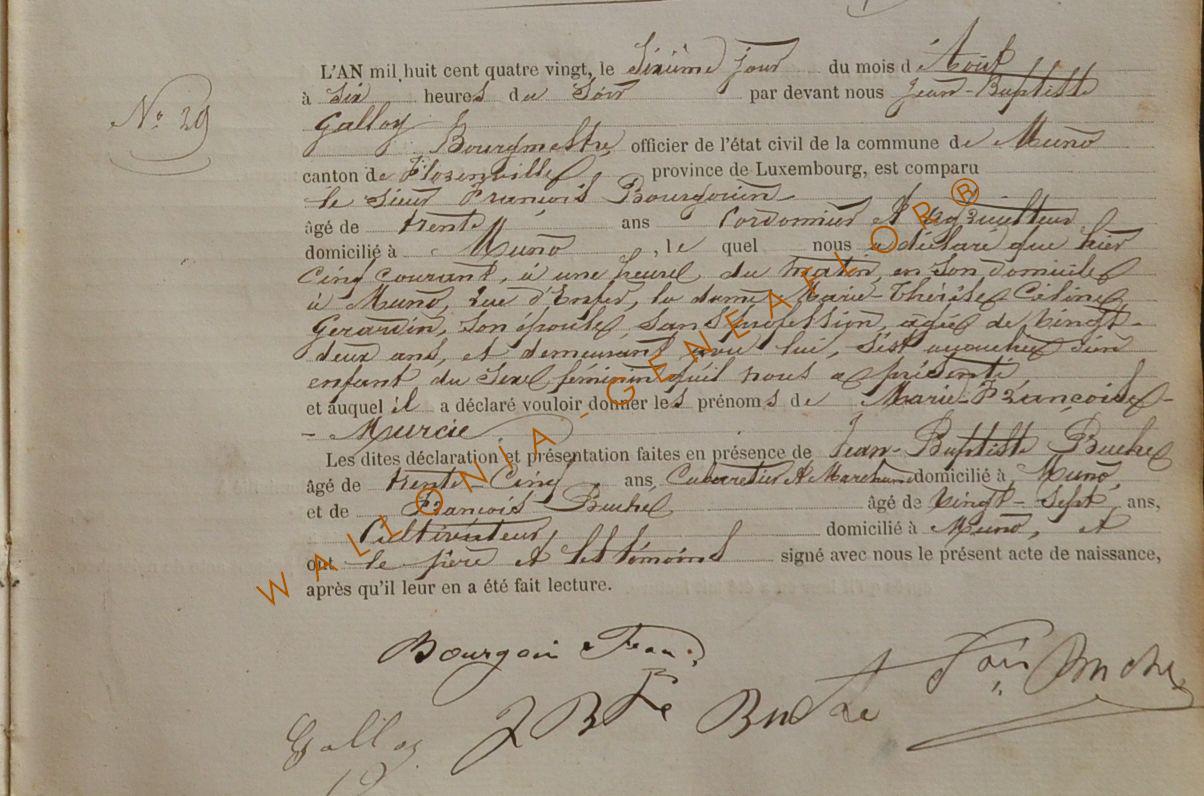 N° 29
L'AN mil huit cent quatre vingt, le Sixième jour du mois d'Août
à Six heures du Soir par devant nous Jean-Baptiste
Galloy
Bourgmestre officier de l'état civil de la commune de Muno
canton de Florenville province de Luxembourg, est comparu
le Sieur François Bourgoin
âgé de trente ans Cordonnier et agriculteur
domicilié à Muno, le quel nous a déclaré que hier
Cinq courant, à une heure du matin, en Son domicile
à Muno, rue d'Enfer, la dame Marie-Thérèse Céline
Gerardin, Son épouse, Sans profession, agée de Vingt-
deux ans, et demeurant avec lui, s'est accouchée d'un
enfant du Sexe féminin qu'il nous a présenté,
et auquel il a déclaré vouloir donner les prénoms de Marie-Françoise-
- Murcie
Les dites déclaration et présentation faites en présence de Jean-Baptiste Buche
âgé de trente-Cinq ans, Cabaretier et Marchand domicilié à Muno,
et de François Buche, âgé de Vingt-Sept ans,
Cultivateur, domicilié à Muno, et
ont le père et les témoins signé avec nous le présent acte de naissance,
après qu'il leur en a été fait lecture.
Bourgoin Fran.
Galloy J B te Buche Fois Buche
WALLONIA-GENEAFLORB